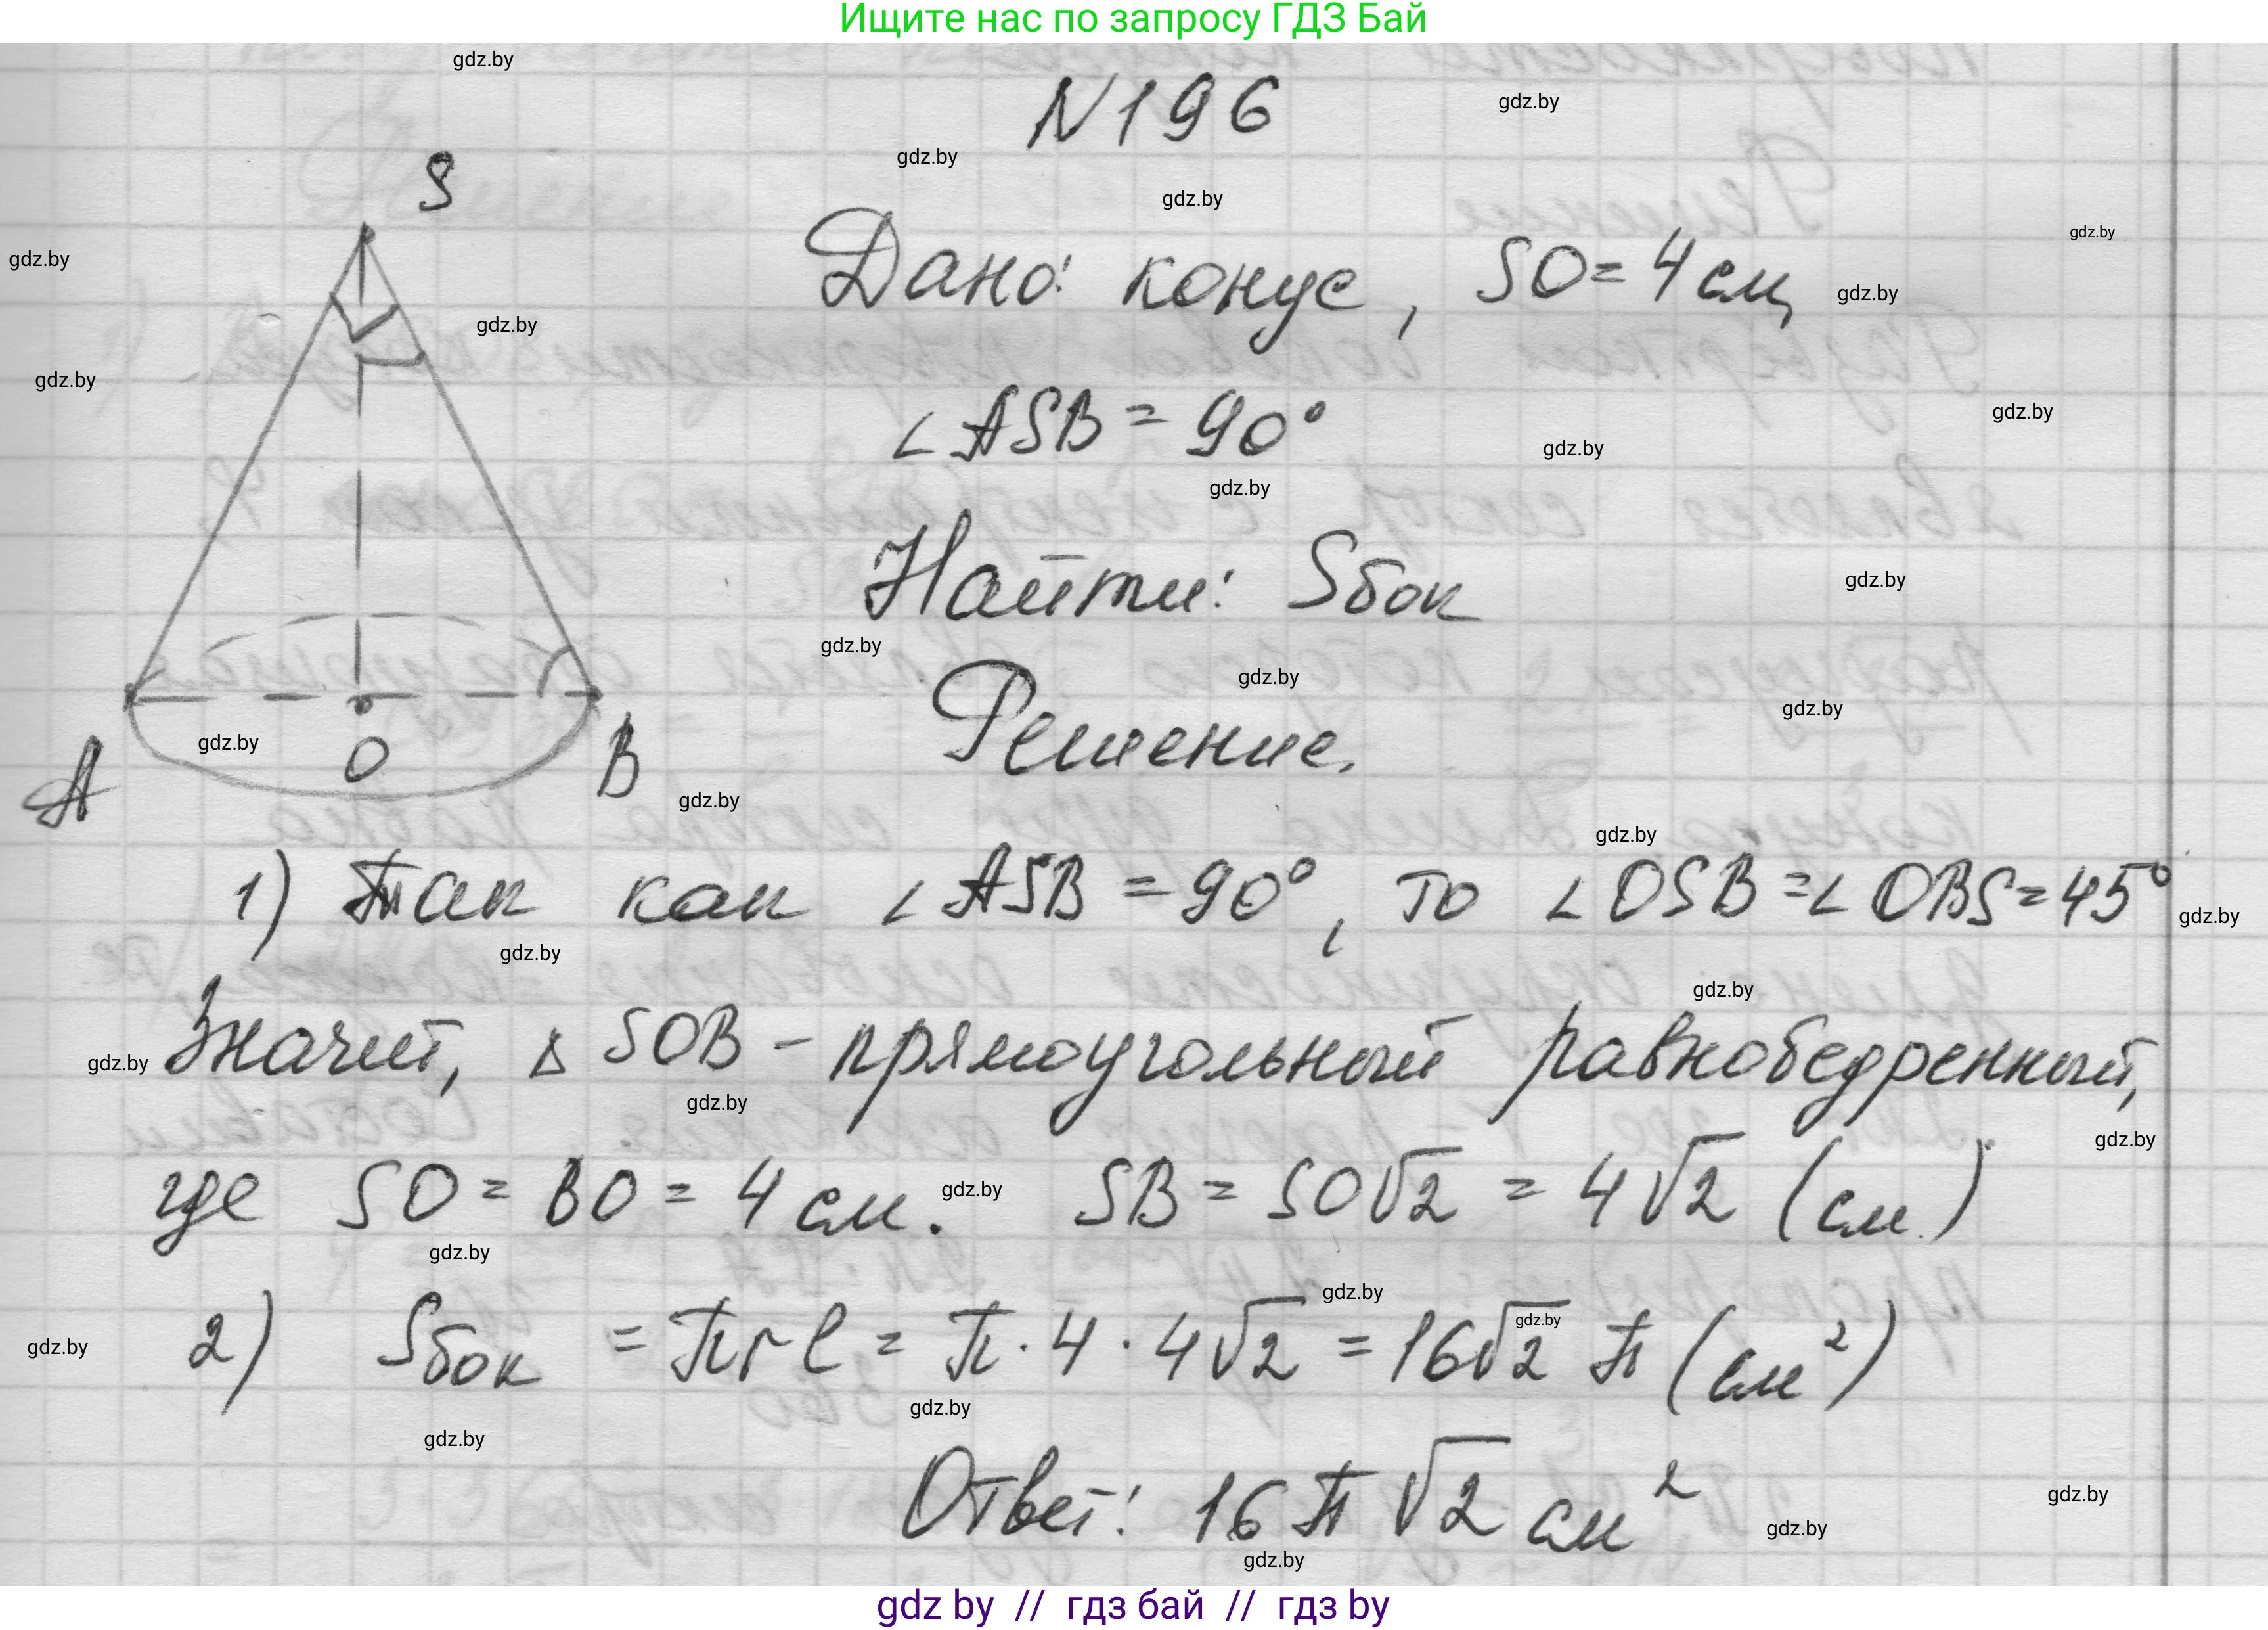 Ищите нас по запросу ГДЗ Бай
gdz.by
N196
gdz.by
gdz.by
S
gdz.by
gdz.by
gdz.by
Дано: конус, SO = 4 см,
gdz.by
gdz.by
gdz.by
∠ASB = 90°
gdz.by
gdz.by
gdz.by
Найти: Sбок
gdz.by
gdz.by
gdz.by
Решение.
gdz.by
gdz.by
A O B
gdz.by
gdz.by
1) Так как ∠ASB = 90°, то ∠OSB = ∠OBS = 45°
gdz.by
gdz.by
gdz.by
Значит, Δ SOB - прямоугольный равнобедренный,
gdz.by
gdz.by
gdz.by
где SO = BO = 4 см. SB = SO√2 = 4√2 (см)
gdz.by
gdz.by
gdz.by
2) Sбок = πrl = π · 4 · 4√2 = 16√2 π (см²)
gdz.by
gdz.by
gdz.by
gdz.by
Ответ: 16π√2 см²
gdz.by
gdz.by
gdz.by
gdz by // гдз бай // гдз by